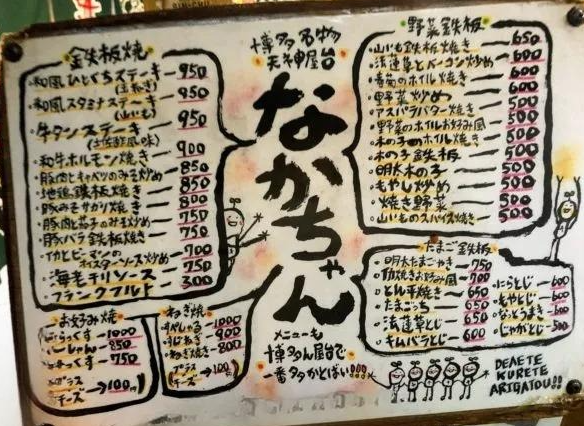 鉄板焼
和風ひとくちステーキ 950
(玉ねぎ)
和風スタミナステーキ 950
(山いも)
牛タンステーキ 950
(土佐酢風味)
和牛ホルモン焼き 900
豚肉とキャベツのみそ炒め 850
地鶏鉄板焼き 850
豚みそサガリ焼き 800
豚肉と茄子のみそ炒め 750
豚バラ鉄板焼き 750
イカとピーマンのオイスターソース炒め 700
海老チリソース 750
フランクフルト 300
お好み焼
1000
850
750
プラス
チーズ →100円
ねぎ焼
すぺしゃる 1000
すじねぎ 900
ねぎ焼き 800
プラス
チーズ →100円
博多名物
天神屋台
なかちゃん
メニューも
博多ん屋台で
一番多かとばい!!!
野菜鉄板
山いも鉄板焼き 650
法連草とベーコン炒め 600
青菜のホイル焼き 600
野菜炒め 600
アスパラバター焼き 500
野菜のホイルお好み風 500
木の子のホイル焼き 500
木の子鉄板 500
明太木の子 500
もやし炒め 500
焼き野菜 500
山いものスパイス焼き 500
たまご鉄板
明太たまごやき 750
お好み風 700
とん平焼き 650
たまごっち 650
法連草とじ 650
キムバラとじ 600
にらとじ 600
もやとじ 600
なっとうまき 600
じゃがとじ 500
DEAETE
KURETE
ARIGATOU!!